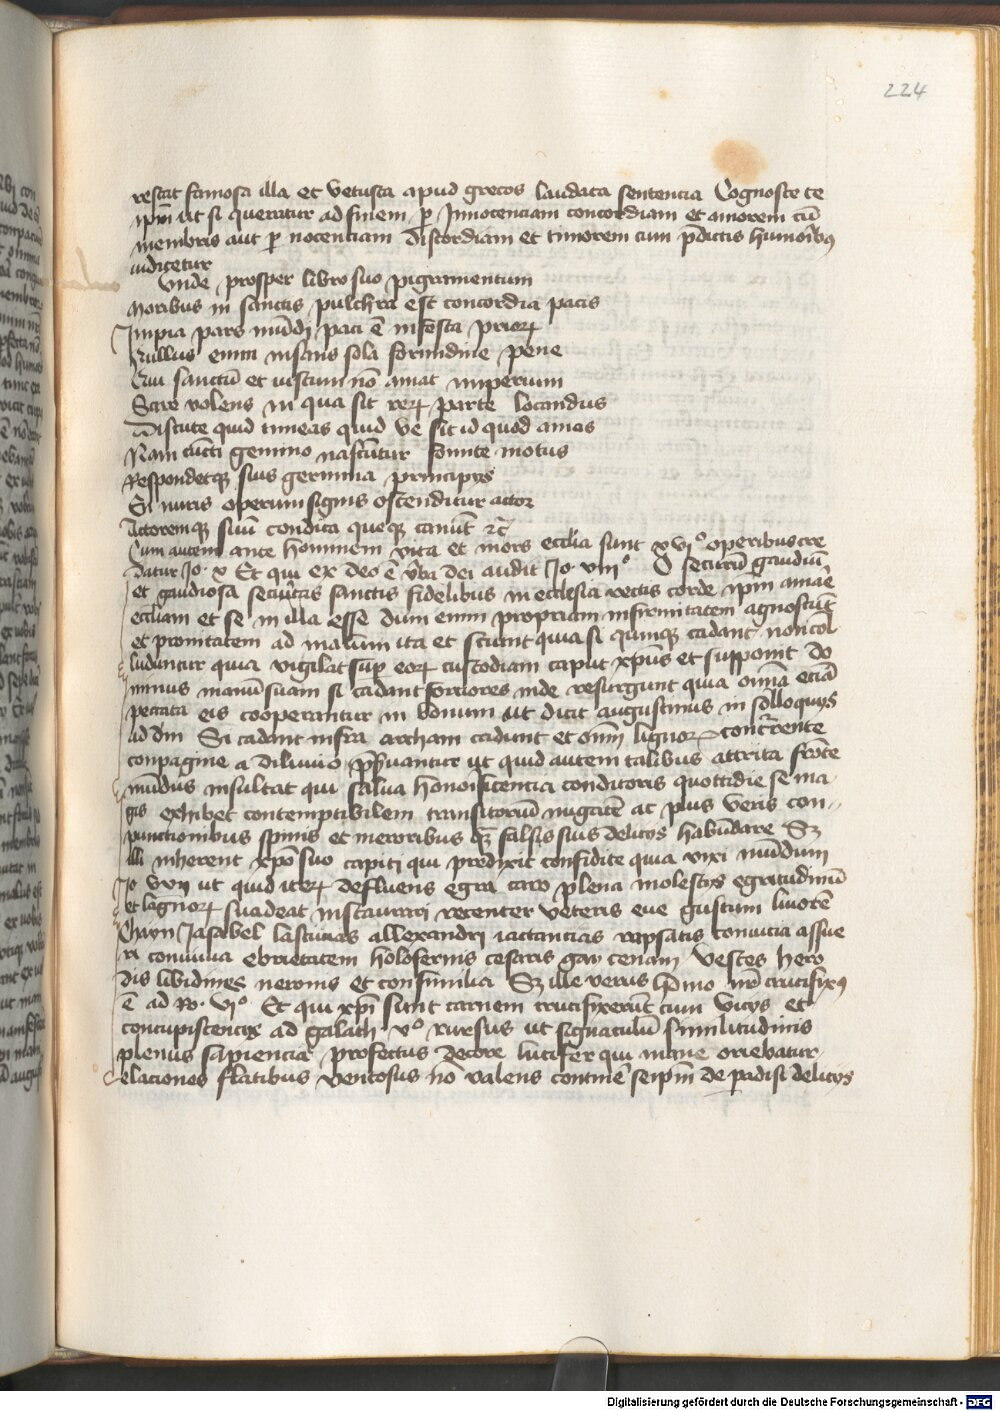 224
restat famosa illa et vetusta apud grecos laudata sentencia Cognosce te
ipm̄ ut si queratur ad finem p̱ Innocenciam concordiam et amorem cū
membris aut p̱ nocenciam discordiam et timorem cum p̄dictis
iudicetur
Unde prosper libro suo pigramentum
Moribus in sanctis pulchra est concordia pacis
Impia pars mūdi paci ē infesta prioꝝ
Nullus enim sola formidine pene
Qui sanctū et iustum nō amat imperium
Scire volens in qua sit reꝝ parte locandus
Discute quid timeas quid ve sit id quod amas
Nam cūcti gemino nascūtur fomite motus
Respondetqꝫ suis germina principijs
Si operum signis ostenditur actor
Actoremqꝫ suū condita queqꝫ canūt ꝛc̄
Cum autem ante hominem vita et mors sunt xviº operibus cre
datur Jo. x Et qui ex deo ē v̄ba dei audit Jo. viiiº O securū gaudiū
et gaudiosa secūitas sanctis fidelibus in ecclesia rectis corde ip̄m
eccliam et se in illa esse dum enim propriam infirmitatem agnoscūt
et pronitatem ad malum ita et sciunt quia si cadant non col
luduntur quia vigilat sup̱ eoꝝ custodiam caput xp̄us et supponit do
minus manū suam si cadant forciores inde resurgunt quia om̄ia eciā
peccata eis cooperantur in bonum ut dicit augustinus in solloquijs
ad dm̄ Si cadant infra archam cadunt et
conpagine a diluvio ut quid autem talibus attrita frōte
mūdus insultat qui salua conditoris quottidie se ma
gis exhibet contemptibilem transitoriū ac pius veris con
punctionibus spinis et meroribus qꝫ falsis suis delicijs habūdare Sꝫ
illi inherent xpō suo capiti qui predixit confidite quia vixi mūdum
Jo xvij ut quid iteꝝ defluens egra caro plena molestijs egritudinū
et suadeat instaurari recenter veteris eue gustum livorē
Chayn Jasabel lascivias allexandri iactancias rapsatis convicia assue
ri convivia ebrietatem holofernis cesaris gay cenam vestes hero
dis libidines neronis et consimilia Sꝫ ille verus homo nr̄ crucifixꝰ
ē ad Ro. viº Et qui xp̄i sunt carnem crucifixerūt cum vicijs et
concupiscencijs ad galath vº rursus ut signaculū similitudinis
plenus sapiencia profectus decore lucifer qui mane oriebatur
elaciones flatibus ventosus nō valens continē seip̄m de padisi delicijs
Digitalisierung gefördert durch die Deutsche Forschungsgemeinschaft - DFG